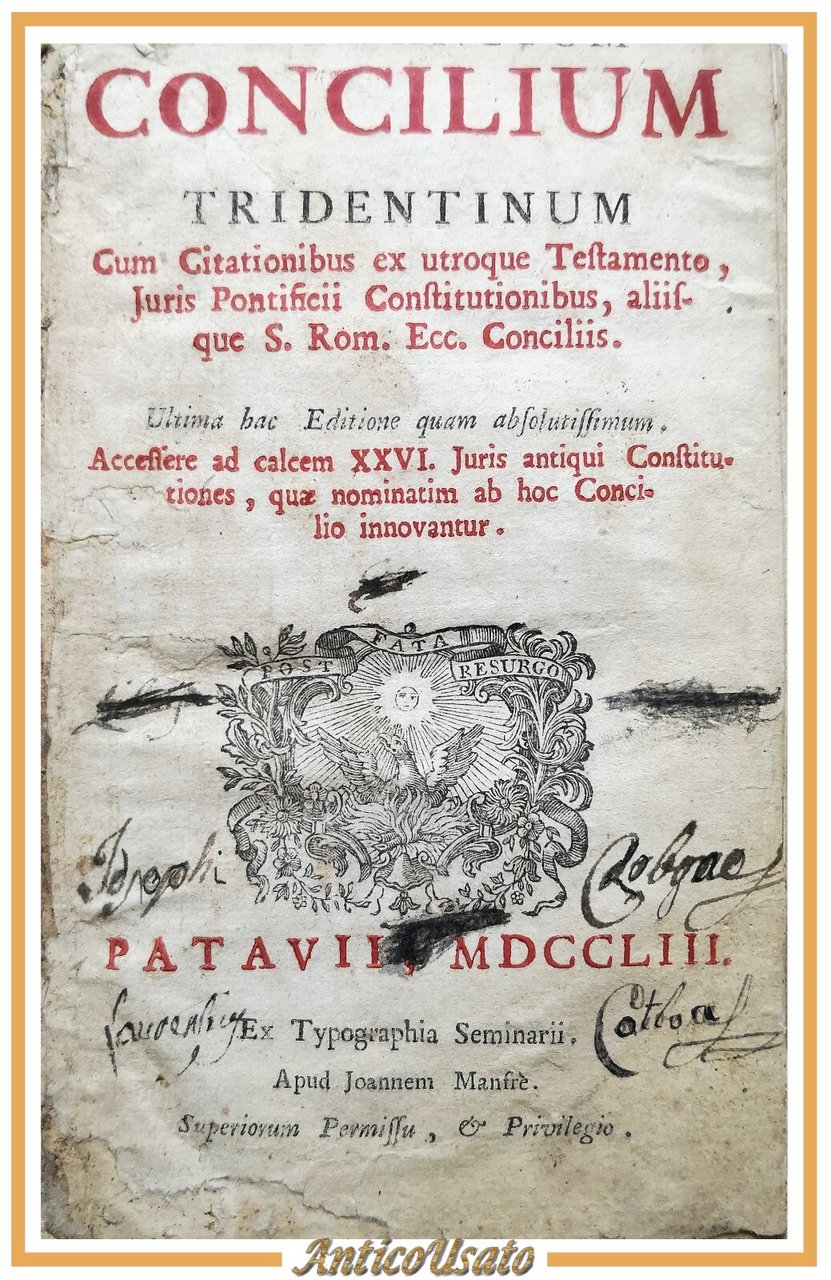 CONCILIUM
TRIDENTINUM
Cum Citationibus ex utroque Teſtamento,
Juris Pontificii Conſtitutionibus, aliiſ-
que S. Rom. Ecc. Conciliis.
Ultima hac Editione quam abſolutiſſimum.
Acceſſere ad calcem XXVI. Juris antiqui Conſtitu-
tiones, quæ nominatim ab hoc Conci-
lio innovantur.
POST FATA RESURGO
Josephi
PATAVII, MDCCLIII.
Ex Typographia Seminarii.
Apud Joannem Manfrè.
Superiorum Permiſſu, & Privilegio.
AnticoUsato